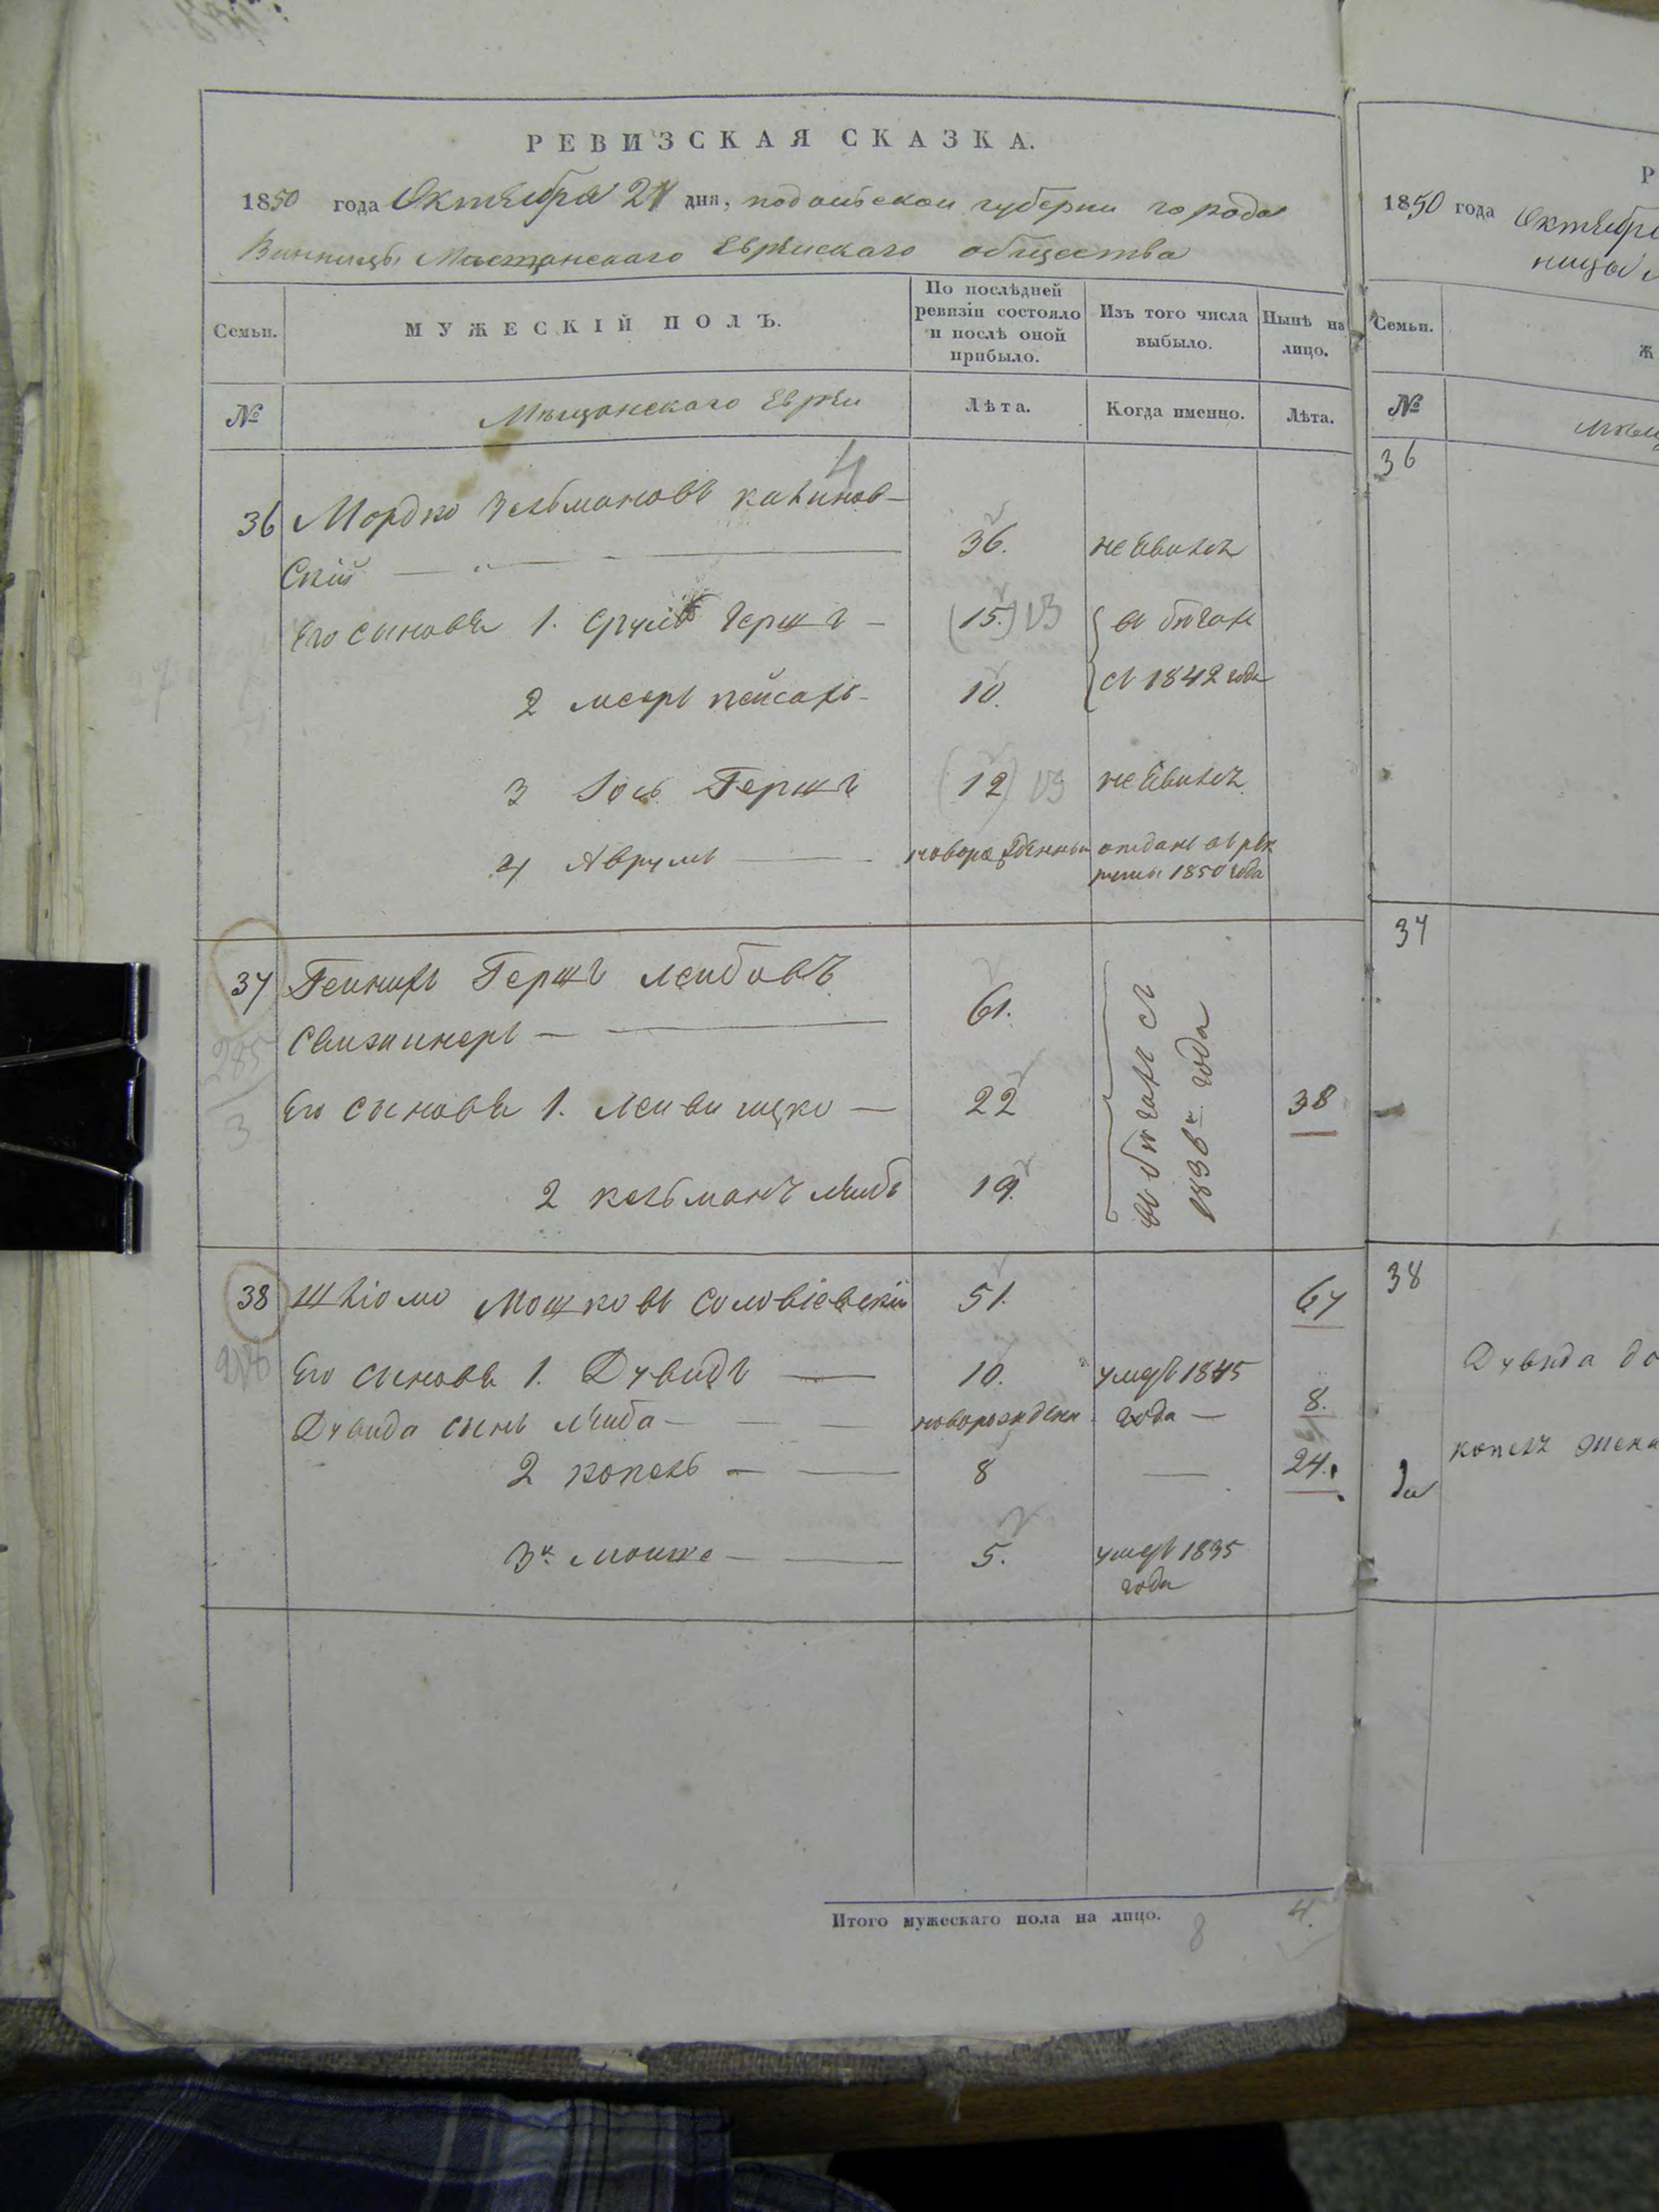 РЕВИЗСКАЯ СКАЗКА.
1850 года Октября 27 дня, подольской губернии города
Винницы Мѣщанскаго Еврейскаго общества
Семьи.
МУЖЕСКІЙ ПОЛЪ.
По послѣдней ревизіи состояло и послѣ оной прибыло.
Изъ того числа выбыло.
Нынѣ на лицо.
№
Мѣщанскаго Евреи
Лѣта.
Когда именно.
Лѣта.
4
36 Мордко Зельмановъ калинов-
скій 36. неявился
Его сыновья 1. Сруль Гершъ 15. 13 въ бѣгахъ
2 мееръ пейсахъ 10. съ 1842 года
3 Іось Гершъ 12 неявился
4 Аврумъ новорожденный отданъ въ рек
руты 1850 года
37 Гейнихъ Гершъ лейбовъ
Свижинеръ 61. въ бѣгахъ съ
1836 года
285
3
Его сыновья 1. ицко 22 38
2 кельманъ лейбъ 19.
38 Шліомо Мошковъ Соловіевскій 51. 67
Его сыновья 1. Дувидъ 10. умеръ 1845
Дувида сынъ лейба новорожден года 8.
2 копель 8 24.
3й мошко 5. умеръ 1835
года
Итого мужескаго пола на лицо. 8 4.
Р
1850 года Октября
ницы
Семьи.
Ж
№
36
37
38
Дувида до
копель жена